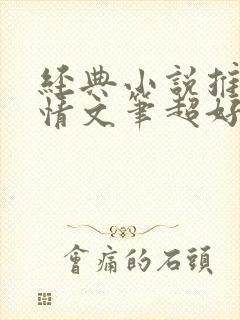 經典小說推
情文筆超好
會痛的石頭